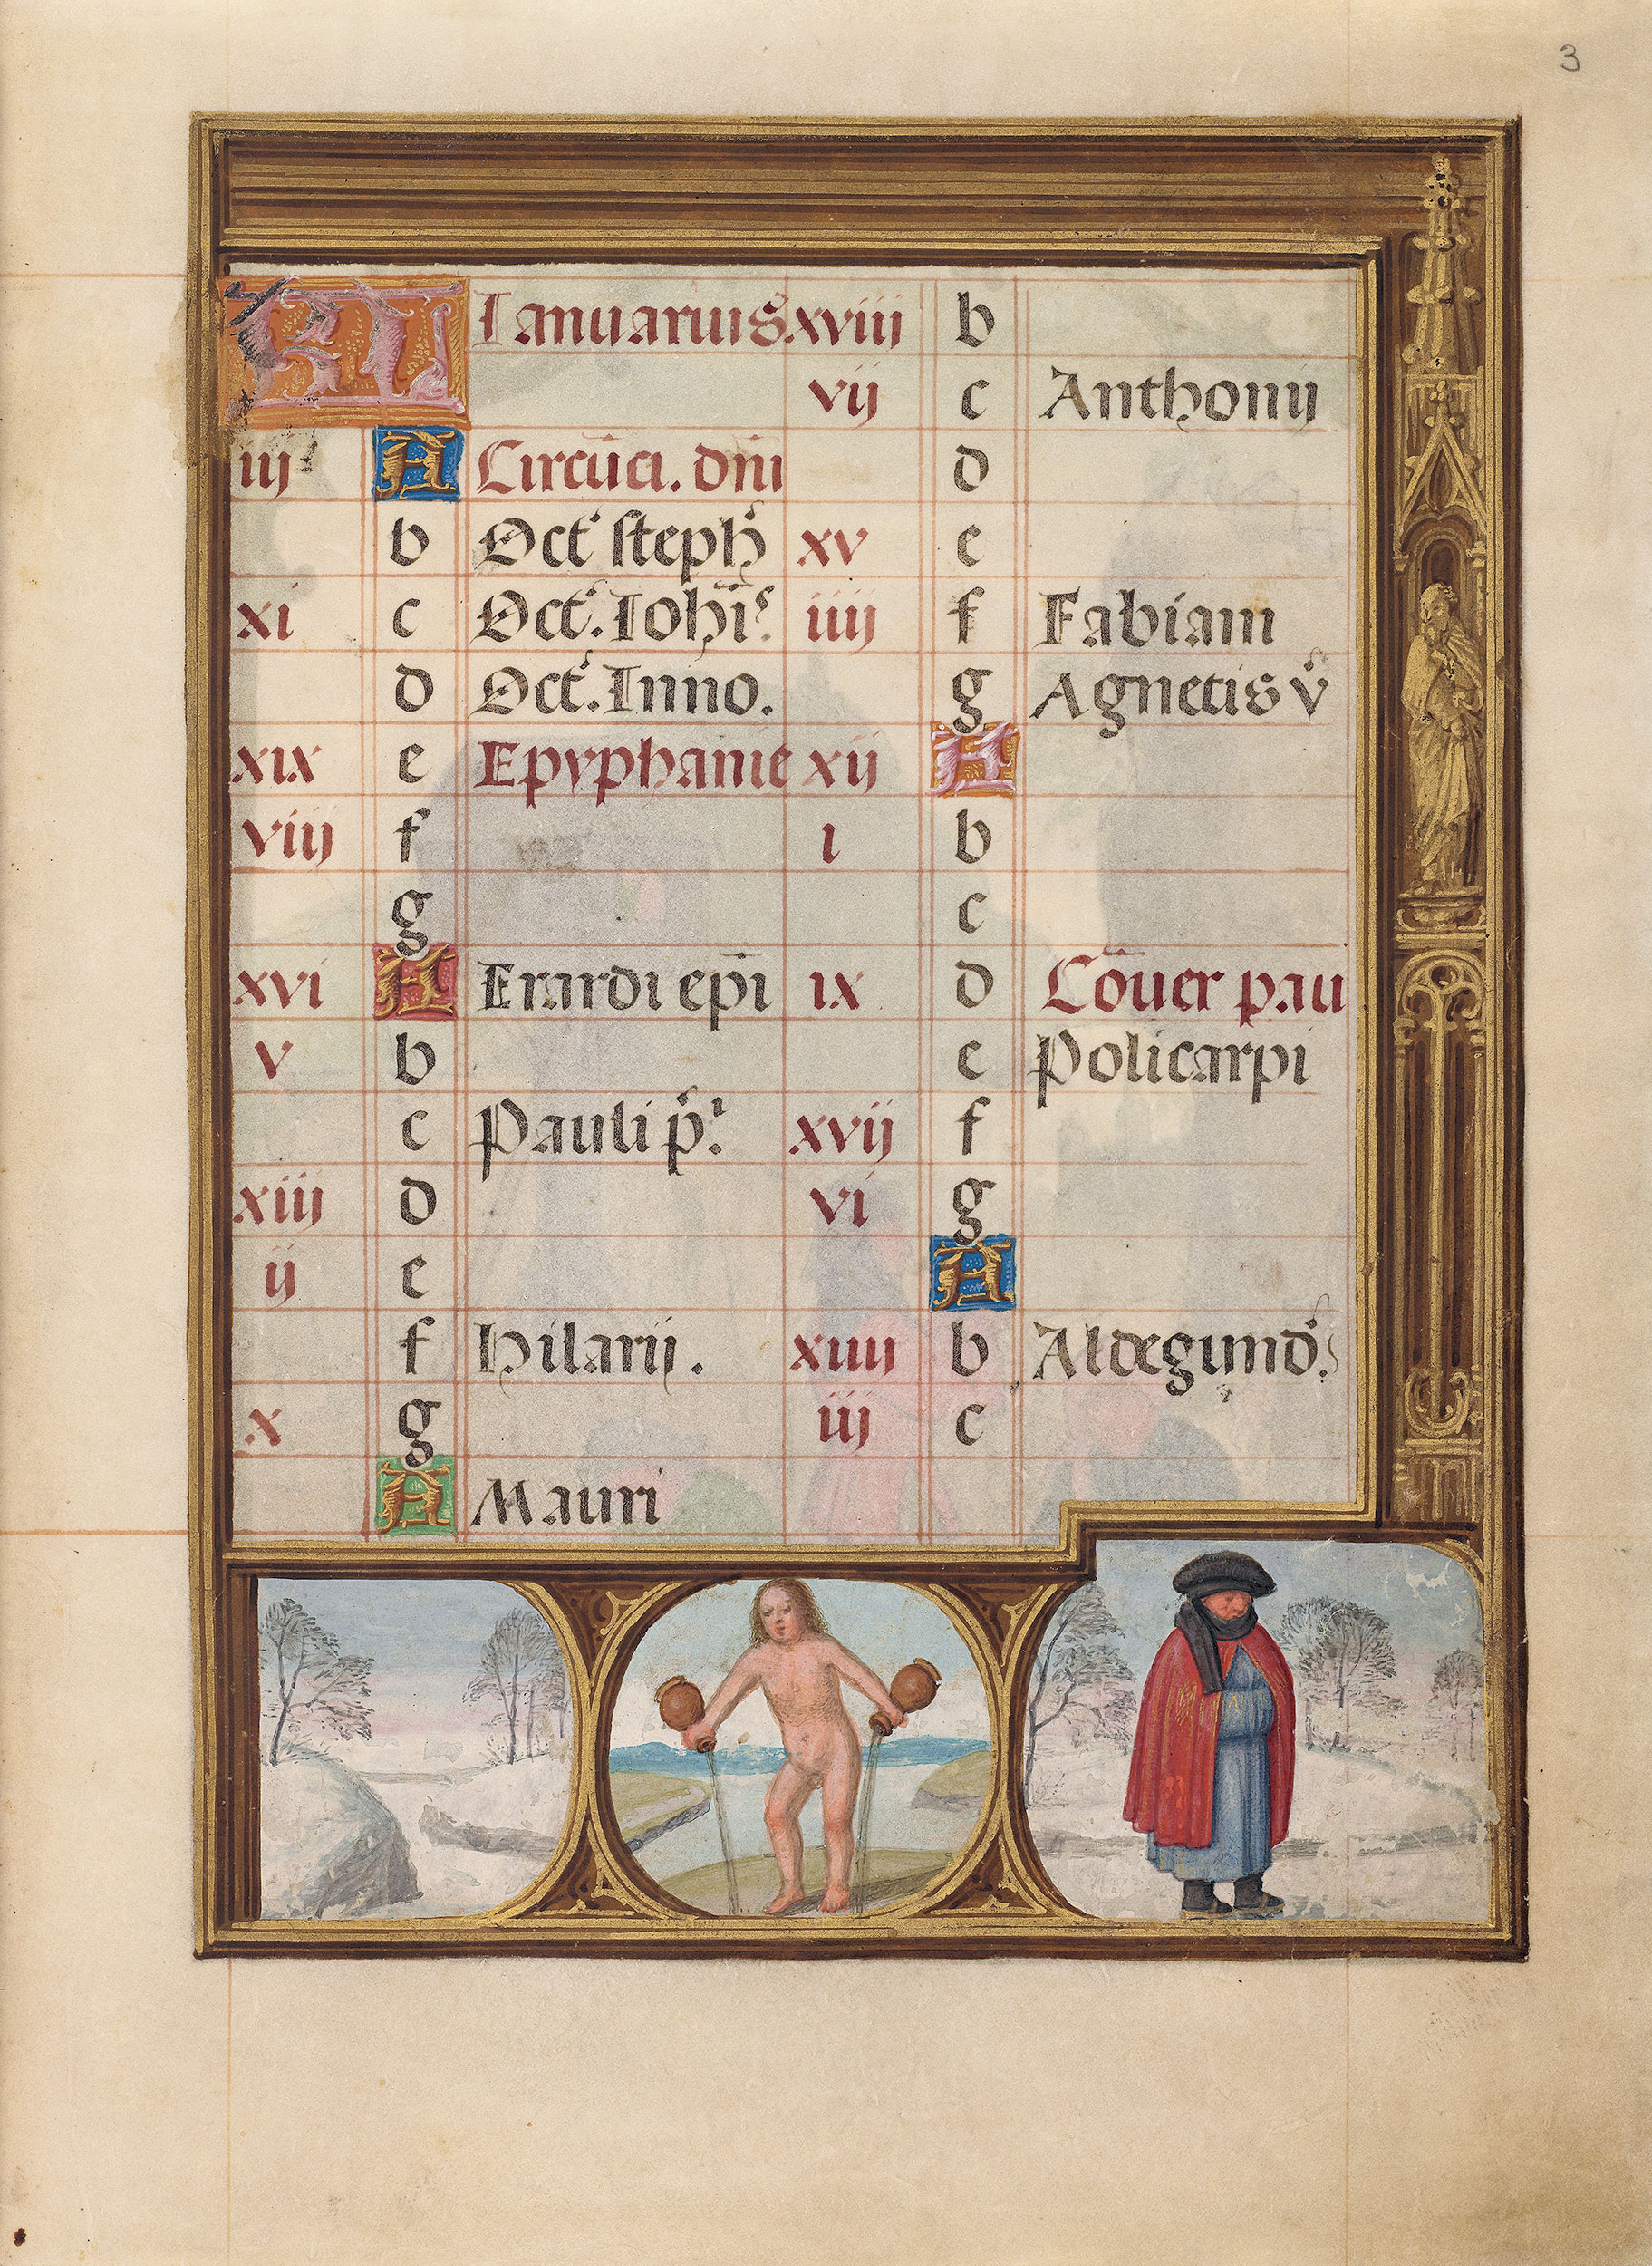 3
KL Ianuarius
iij A Circūci. dn̄i
b Oct' steph'
xi c Oct'. Ioh̄is.
d Oct'. Inno.
xix e Epyphanie
viij f
g
xvi A Erardi ep̄i
v b
c Pauli p'.
xiij d
ij e
f hilarij.
x g
A Mauri
xviij b
vij c Anthonij
d
xv e
iiij f Fabiani
g Agnetis v'
xij A
i b
c
ix d Cōuer pau
e Policarpi
xvij f
vi g
A
xiiij b Aldegund'.
iij c